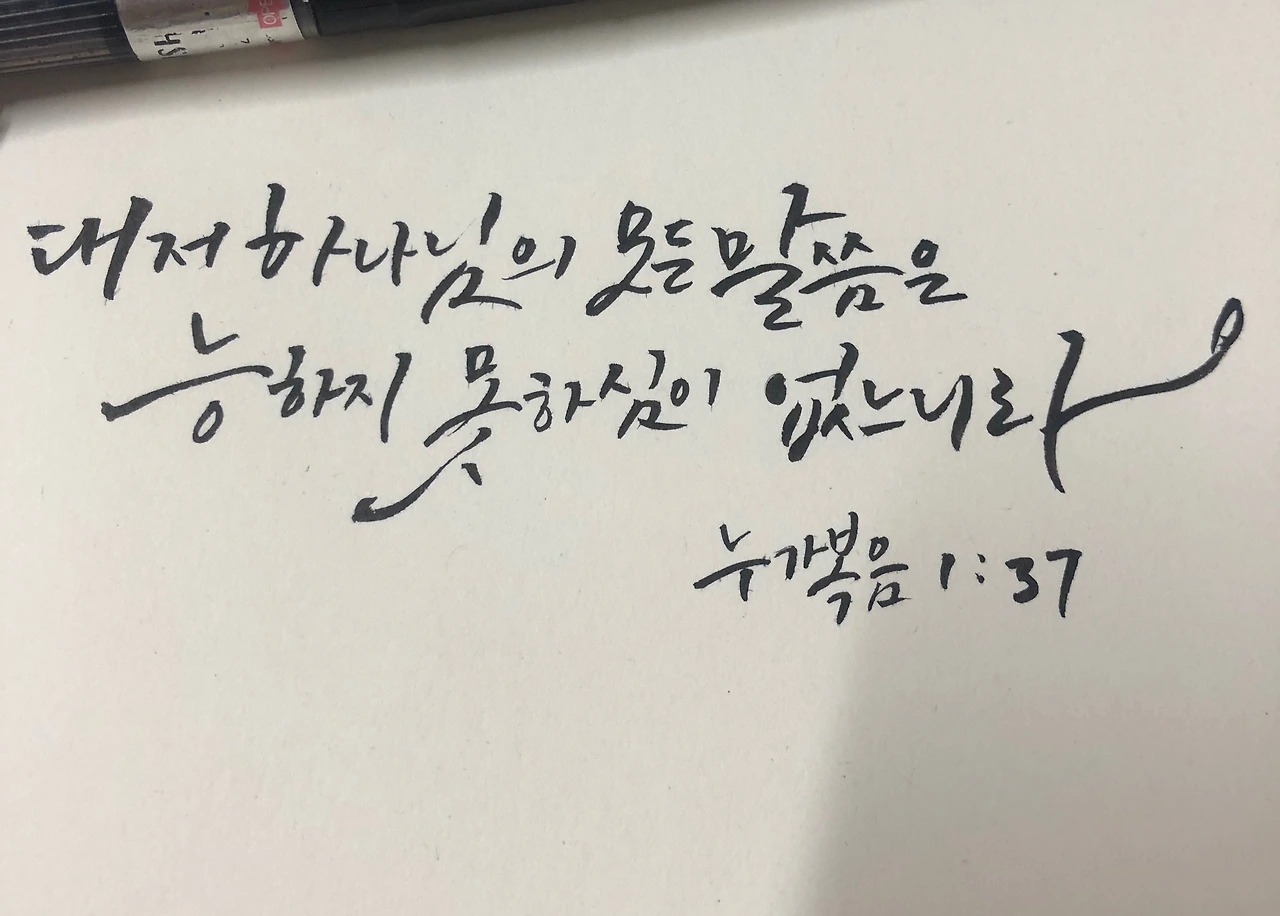 sh
OPE
대저 하나님의 모든 말씀은
능하지 못하심이 없느니라
누가복음 1:37